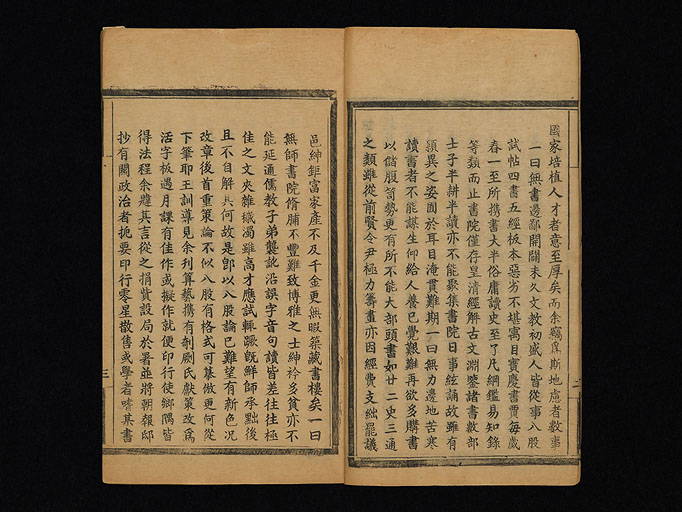 國家培植人才者意至厚矣而余竊爲斯地慮者數事
一曰無書邊鄙開闢未久文教初盛人皆從事八股
試帖四書五經板本惡劣不堪寓目寶慶書賈每歲
春一至所携書大半俗庸讀史至了凡綱鑑易知錄
等類而止書院僅存皇清經解古文淵鑒諸書數部
士子半耕半讀亦不能聚集書院日事絃誦故雖有
穎異之姿囿於耳目淹貫難期一曰無力邊地苦寒
讀書者不能謀生仰給人養已覺艱難再欲多購書
以儲腹笥勢更有所不能大部頭書如廿二史三通
之類雖從前賢令尹極力籌畫亦因經費支絀罷議
二
邑紳鉅富家產不及千金更無暇築藏書樓矣一曰
無師書院脩脯不豐難致博雅之士紳衿多貧亦不
能延通儒教子弟襲訛沿誤字音句讀皆差往往極
佳之文夾雜纖濁雖高才應試輒蹶旣鮮師承黜後
且不自解其何故是卽以八股論已難望有新色况
改章後首重策論不似八股有格式可摹倣更何從
下筆耶王訓導見余列算藝携有刱劂氏獻策改爲
活字板遇月課有佳作或擬作就便印行使鄉隅皆
得法程余韙其言從之捐貲設局於署並將朝報邸
抄有關政治者扼要印行零星散傳或學者嗜其書
三